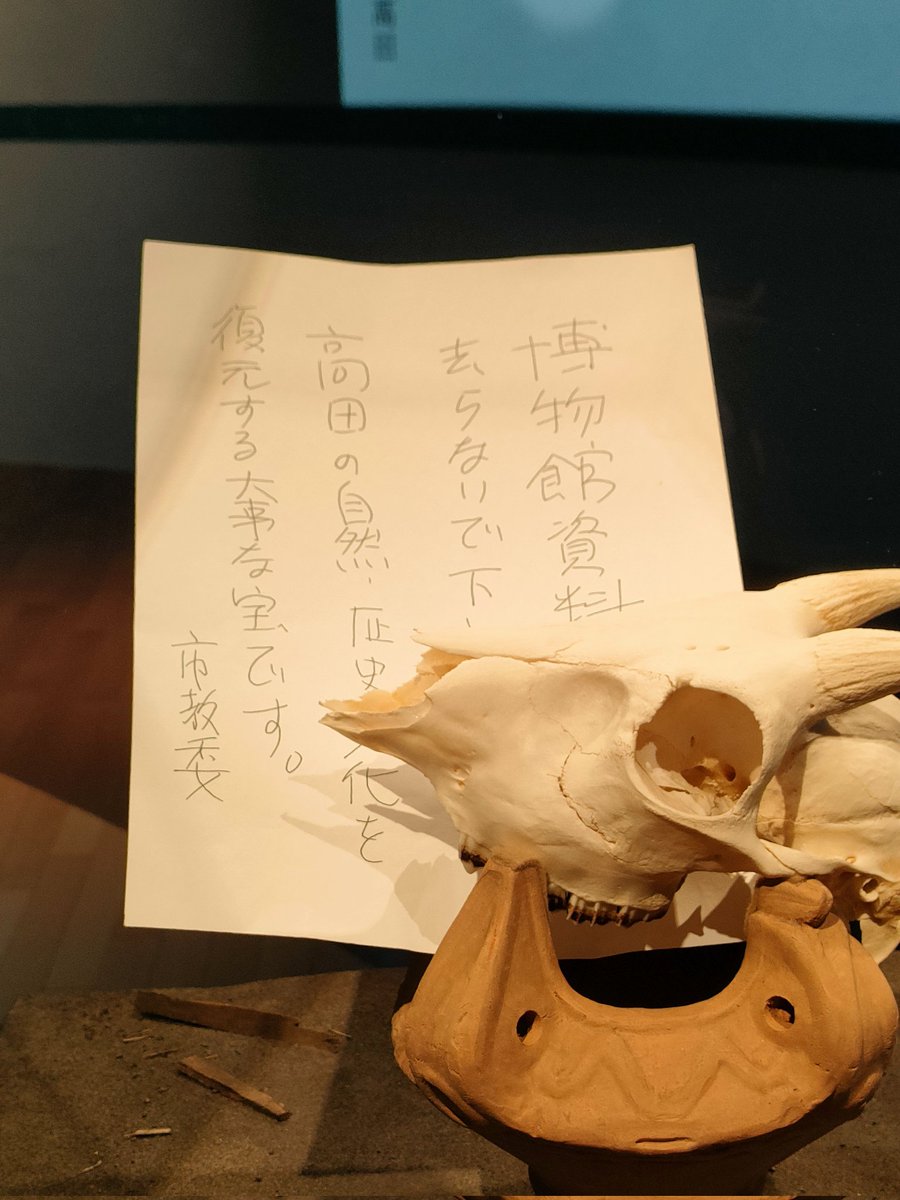 博物館資料
去らないで下
高田の自然、歴史 化を
復元する大事な宝です。
市教委